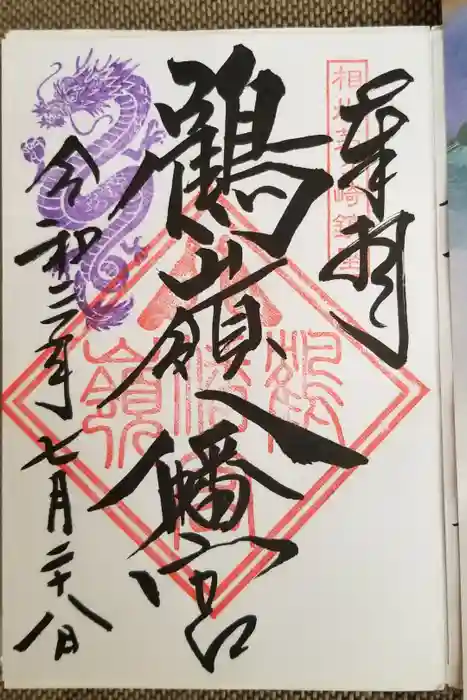 奉拝
相州茅ヶ崎鎮座
鶴嶺八幡宮
令和三年七月二十八日